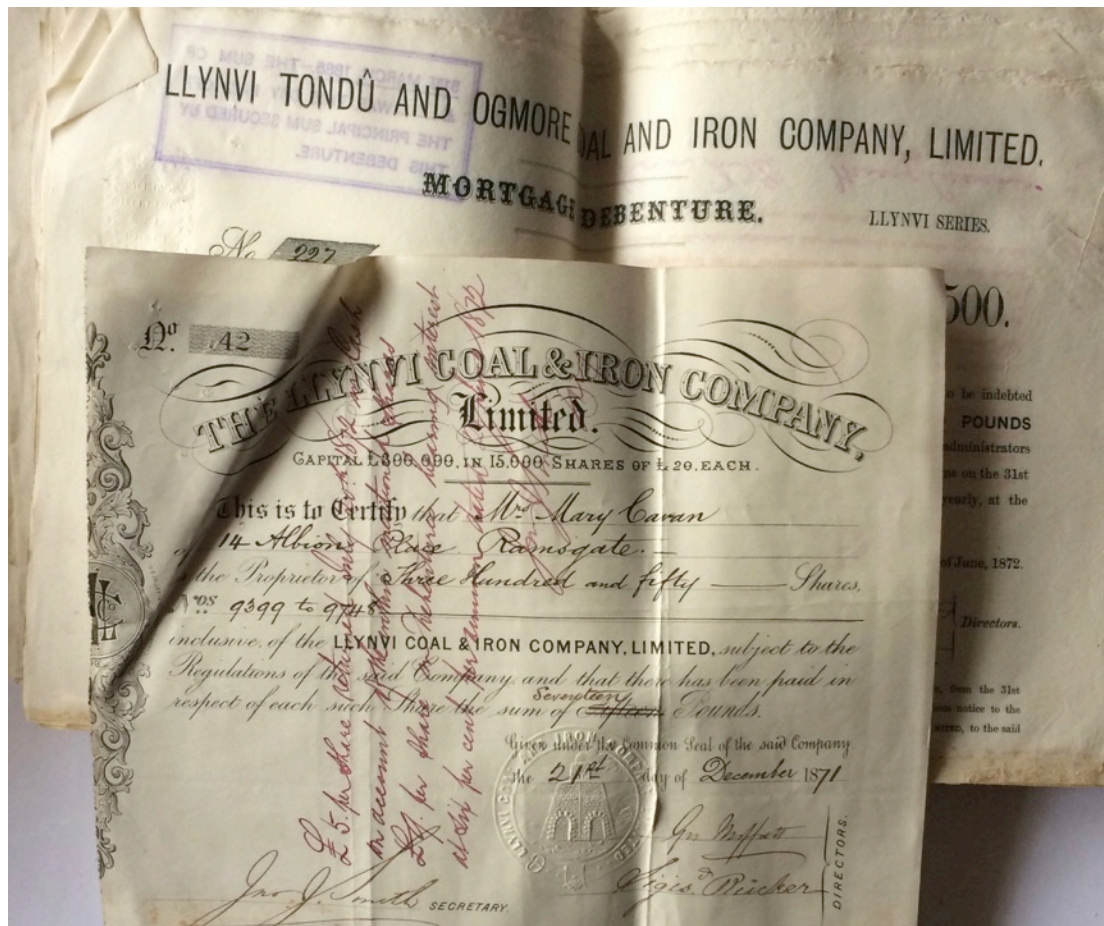 LLYNVI TONDÛ AND OGMORE COAL AND IRON COMPANY, LIMITED.
MORTGAGE DEBENTURE.
LLYNVI SERIES.
No 227
500.
to be indebted
POUNDS
administrators
on the 31st
yearly, at the
of June, 1872.
Directors.
from the 31st
notice to the
to the said
31ST MARCH 1888—THE SUM OF
THE PRINCIPAL SUM SECURED BY
THIS DEBENTURE.
No. 42
THE LLYNVI COAL & IRON COMPANY,
Limited.
CAPITAL £300,000, IN 15,000 SHARES OF £20, EACH.
This is to Certify that Mrs Mary Cavan
of 14 Albion Place Ramsgate.
is the Proprietor of Three Hundred and fifty Shares,
Nos 9399 to 9748
inclusive, of the LLYNVI COAL & IRON COMPANY, LIMITED, subject to the
Regulations of the said Company, and that there has been paid in
respect of each such Share the sum of Seventeen Fifteen Pounds.
Given under the Common Seal of the said Company
the 21st day of December 1871
Jno J. Smith SECRETARY.
DIRECTORS.
£5. per Share returned 1872 in Cash
on account of the within mentioned shares
per share in Debentures bearing interest
at six per cent per annum 1872